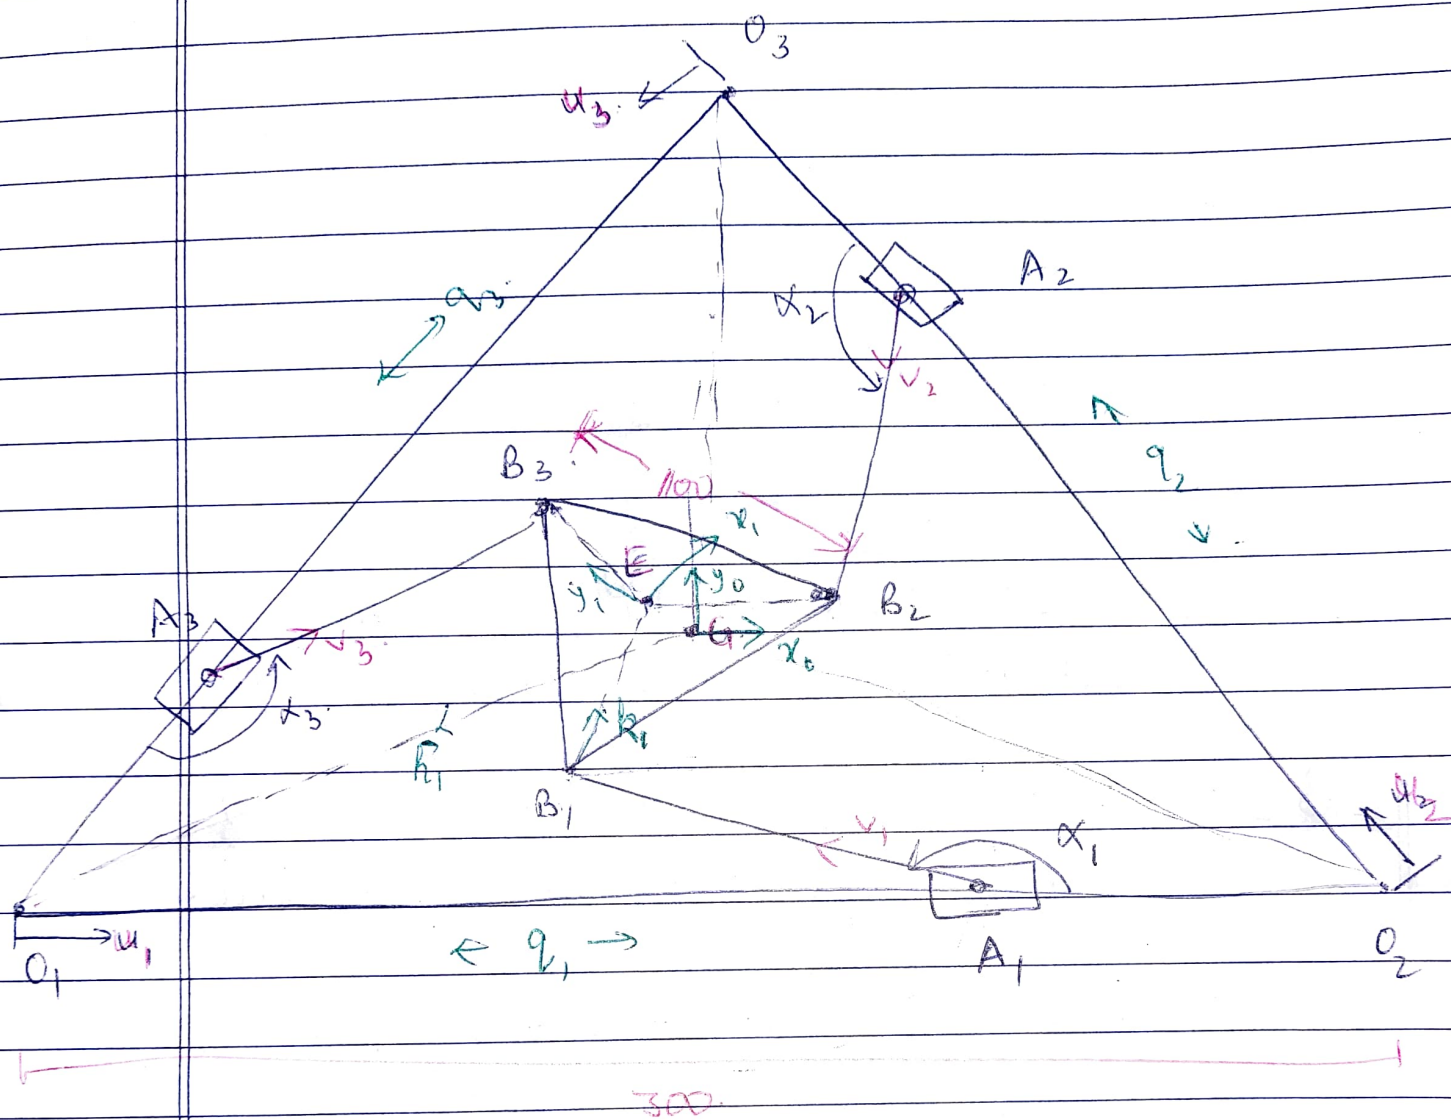 O3
u3
A2
α2
q3
v2
q2
B3
100
x1
E
y1
y0
B2
A3
v3
G
x0
α3
k1
h1
B1
u2
v1
α1
u1
O1
q1
A1
O2
300